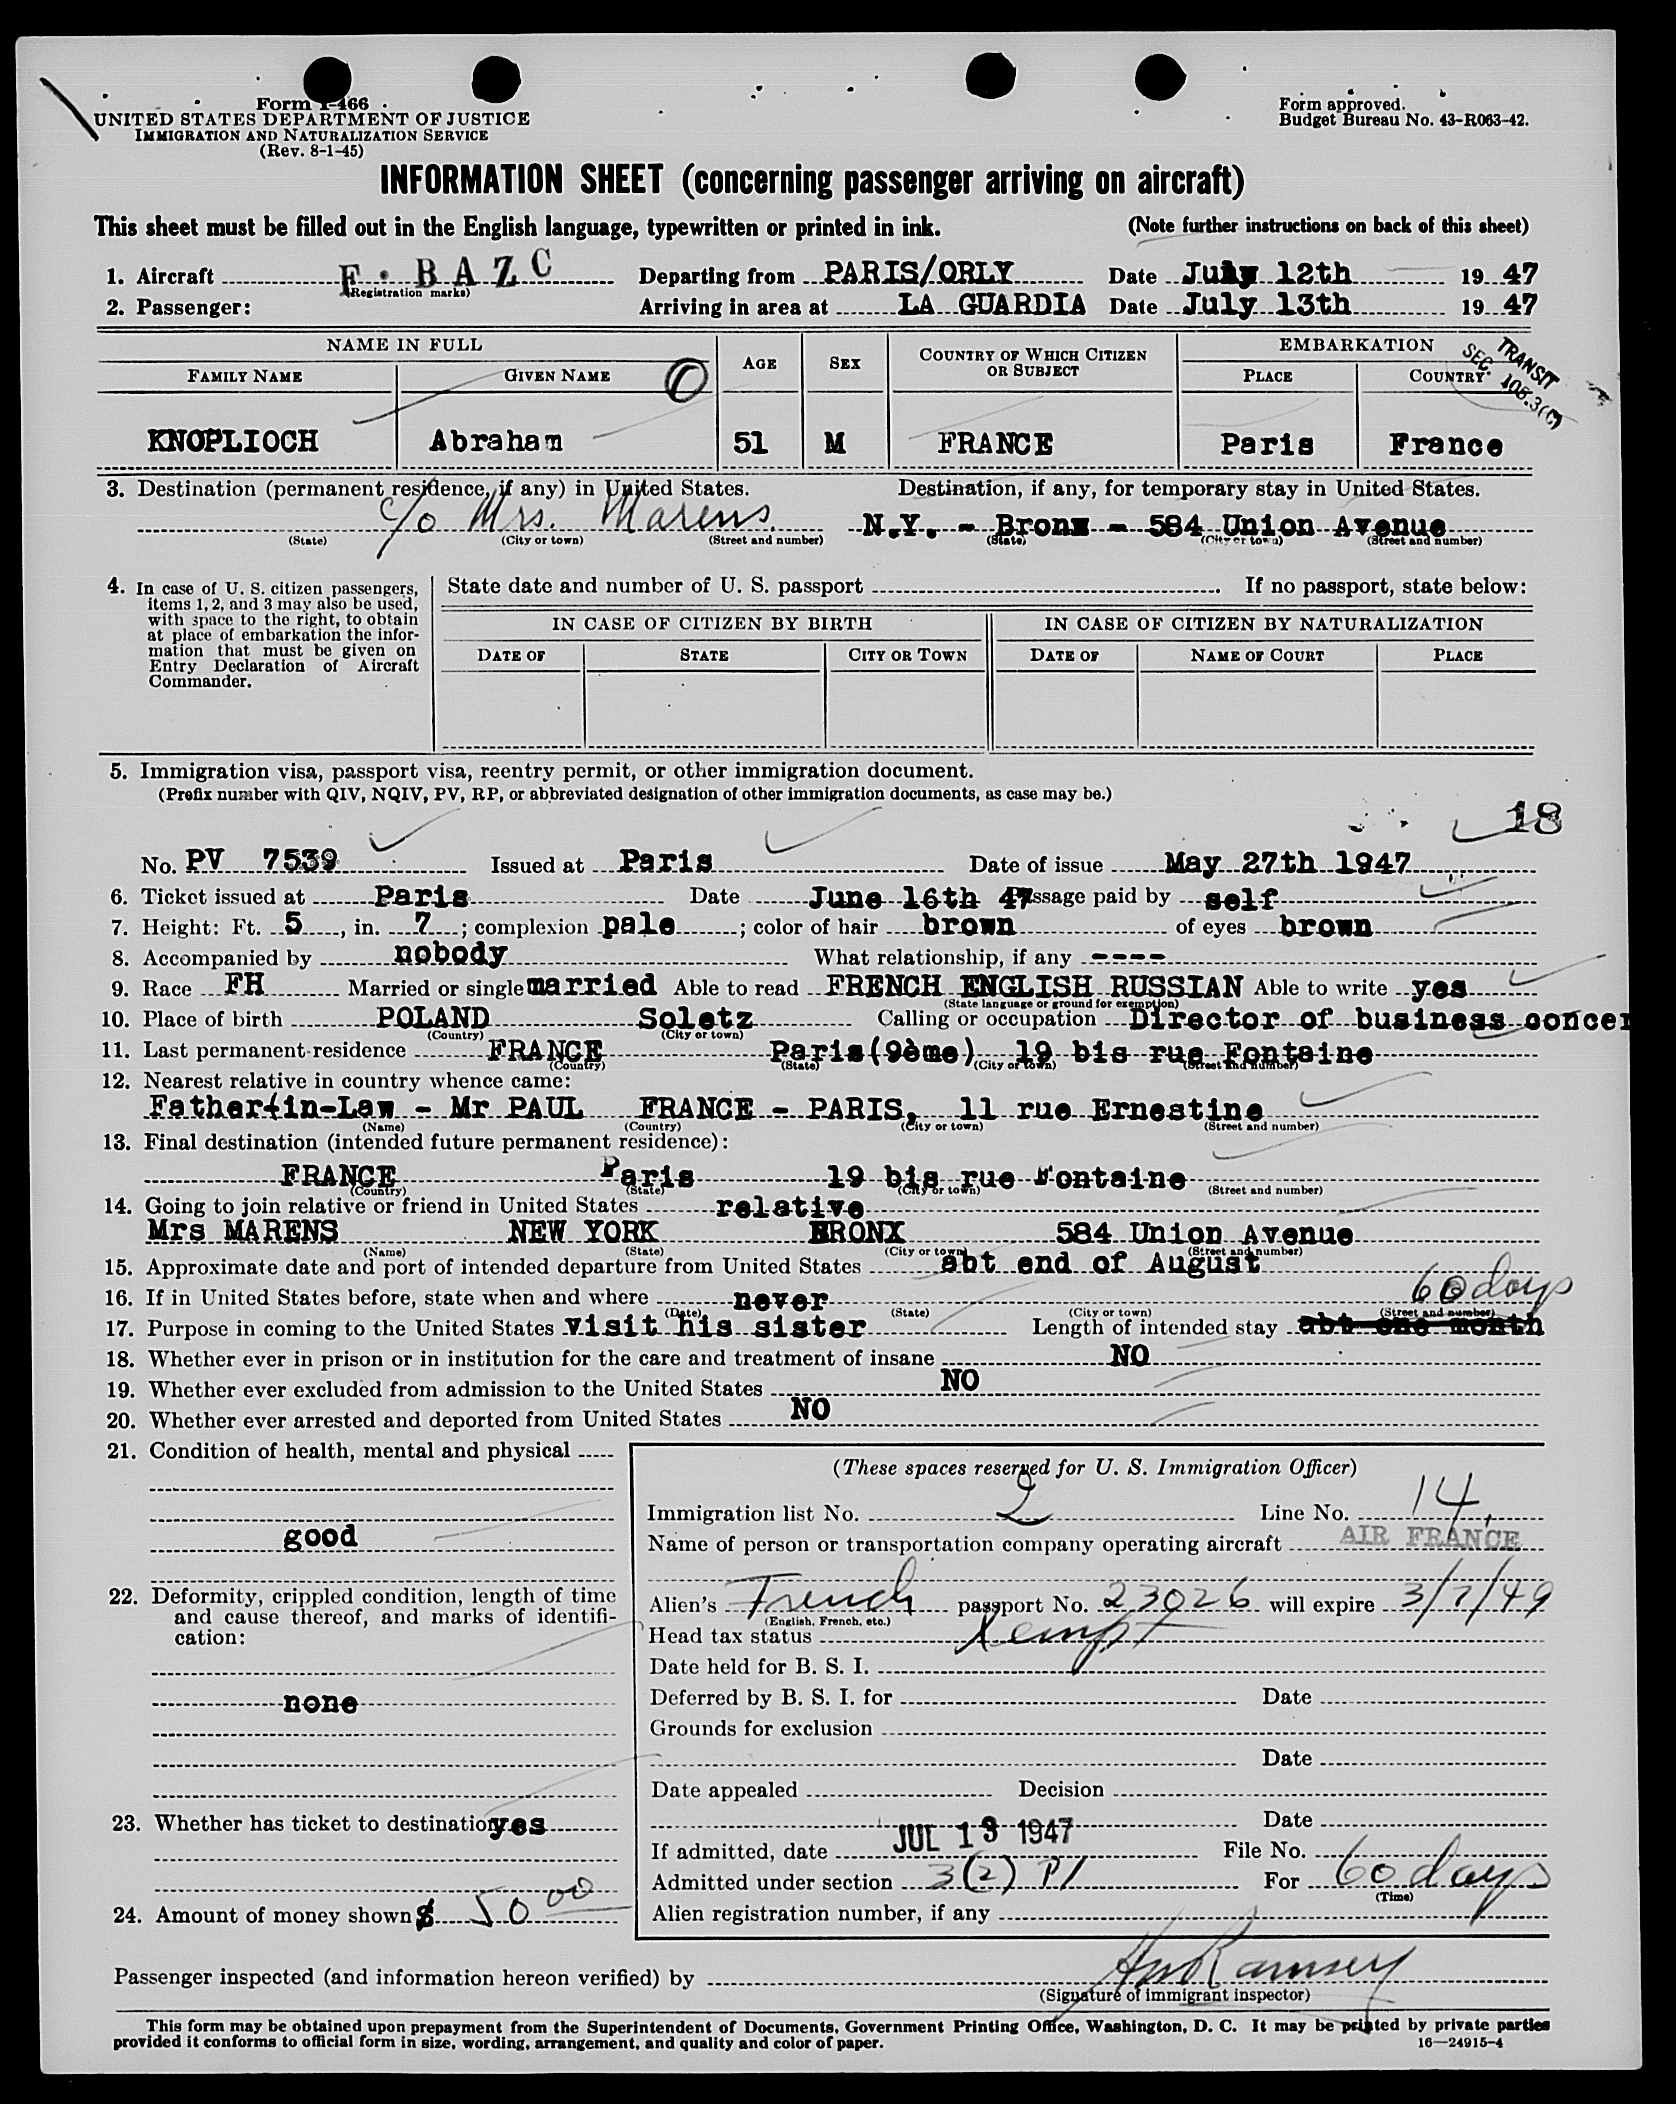 Form I-466
UNITED STATES DEPARTMENT OF JUSTICE
IMMIGRATION AND NATURALIZATION SERVICE
(Rev. 8-1-45)
Form approved.
Budget Bureau No. 43-R063-42.
INFORMATION SHEET (concerning passenger arriving on aircraft)
This sheet must be filled out in the English language, typewritten or printed in ink. (Note further instructions on back of this sheet)
1. Aircraft F. BAZC Departing from PARIS/ORLY Date July 12th 1947
(Registration marks)
2. Passenger: Arriving in area at LA GUARDIA Date July 13th 1947
NAME IN FULL AGE SEX COUNTRY OF WHICH CITIZEN OR SUBJECT EMBARKATION
FAMILY NAME GIVEN NAME PLACE COUNTRY
TRANSIT
SEC. 105.3(C)
KNOPLIOCH Abraham 51 M FRANCE Paris France
3. Destination (permanent residence, if any) in United States. Destination, if any, for temporary stay in United States.
c/o Mrs. Marens N.Y. - Bronx - 584 Union Avenue
(State) (City or town) (Street and number) (State) (City or town) (Street and number)
4. In case of U. S. citizen passengers, items 1, 2, and 3 may also be used, with space to the right, to obtain at place of embarkation the information that must be given on Entry Declaration of Aircraft Commander.
State date and number of U. S. passport If no passport, state below:
IN CASE OF CITIZEN BY BIRTH IN CASE OF CITIZEN BY NATURALIZATION
DATE OF STATE CITY OR TOWN DATE OF NAME OF COURT PLACE
5. Immigration visa, passport visa, reentry permit, or other immigration document.
(Prefix number with QIV, NQIV, PV, RP, or abbreviated designation of other immigration documents, as case may be.)
18
No. PV 7539 Issued at Paris Date of issue May 27th 1947
6. Ticket issued at Paris Date June 16th 47 Passage paid by self
7. Height: Ft. 5, in. 7; complexion pale; color of hair brown of eyes brown
8. Accompanied by nobody What relationship, if any ----
9. Race FH Married or single married Able to read FRENCH ENGLISH RUSSIAN Able to write yes
(State language or ground for exemption)
10. Place of birth POLAND Soletz Calling or occupation Director of business concer
(Country) (City or town)
11. Last permanent residence FRANCE Paris(9ème) 19 bis rue Fontaine
(Country) (State) (City or town) (Street and number)
12. Nearest relative in country whence came:
Father-in-Law - Mr PAUL FRANCE - PARIS, 11 rue Ernestine
(Name) (Country) (City or town) (Street and number)
13. Final destination (intended future permanent residence):
FRANCE Paris 19 bis rue Fontaine
(Country) (State) (City or town) (Street and number)
14. Going to join relative or friend in United States relative
Mrs MARENS NEW YORK BRONX 584 Union Avenue
(Name) (State) (City or town) (Street and number)
15. Approximate date and port of intended departure from United States abt end of August
16. If in United States before, state when and where never 60 days
(Date) (State) (City or town) (Street and number)
17. Purpose in coming to the United States visit his sister Length of intended stay abt one month
18. Whether ever in prison or in institution for the care and treatment of insane NO
19. Whether ever excluded from admission to the United States NO
20. Whether ever arrested and deported from United States NO
21. Condition of health, mental and physical
good
22. Deformity, crippled condition, length of time and cause thereof, and marks of identification:
none
23. Whether has ticket to destination yes
24. Amount of money shown $ 50 00
(These spaces reserved for U. S. Immigration Officer)
Immigration list No. 2 Line No. 14.
Name of person or transportation company operating aircraft AIR FRANCE
Alien's French passport No. 23026 will expire 3/7/49
(English, French, etc.)
Head tax status Xempt
Date held for B. S. I.
Deferred by B. S. I. for Date
Grounds for exclusion
Date
Date appealed Decision
Date
If admitted, date JUL 13 1947 File No.
Admitted under section 3(2) P/ For 60 days
(Time)
Alien registration number, if any
Passenger inspected (and information hereon verified) by Ramsey
(Signature of immigrant inspector)
This form may be obtained upon prepayment from the Superintendent of Documents, Government Printing Office, Washington, D. C. It may be printed by private parties
provided it conforms to official form in size, wording, arrangement, and quality and color of paper. 16—24915-4